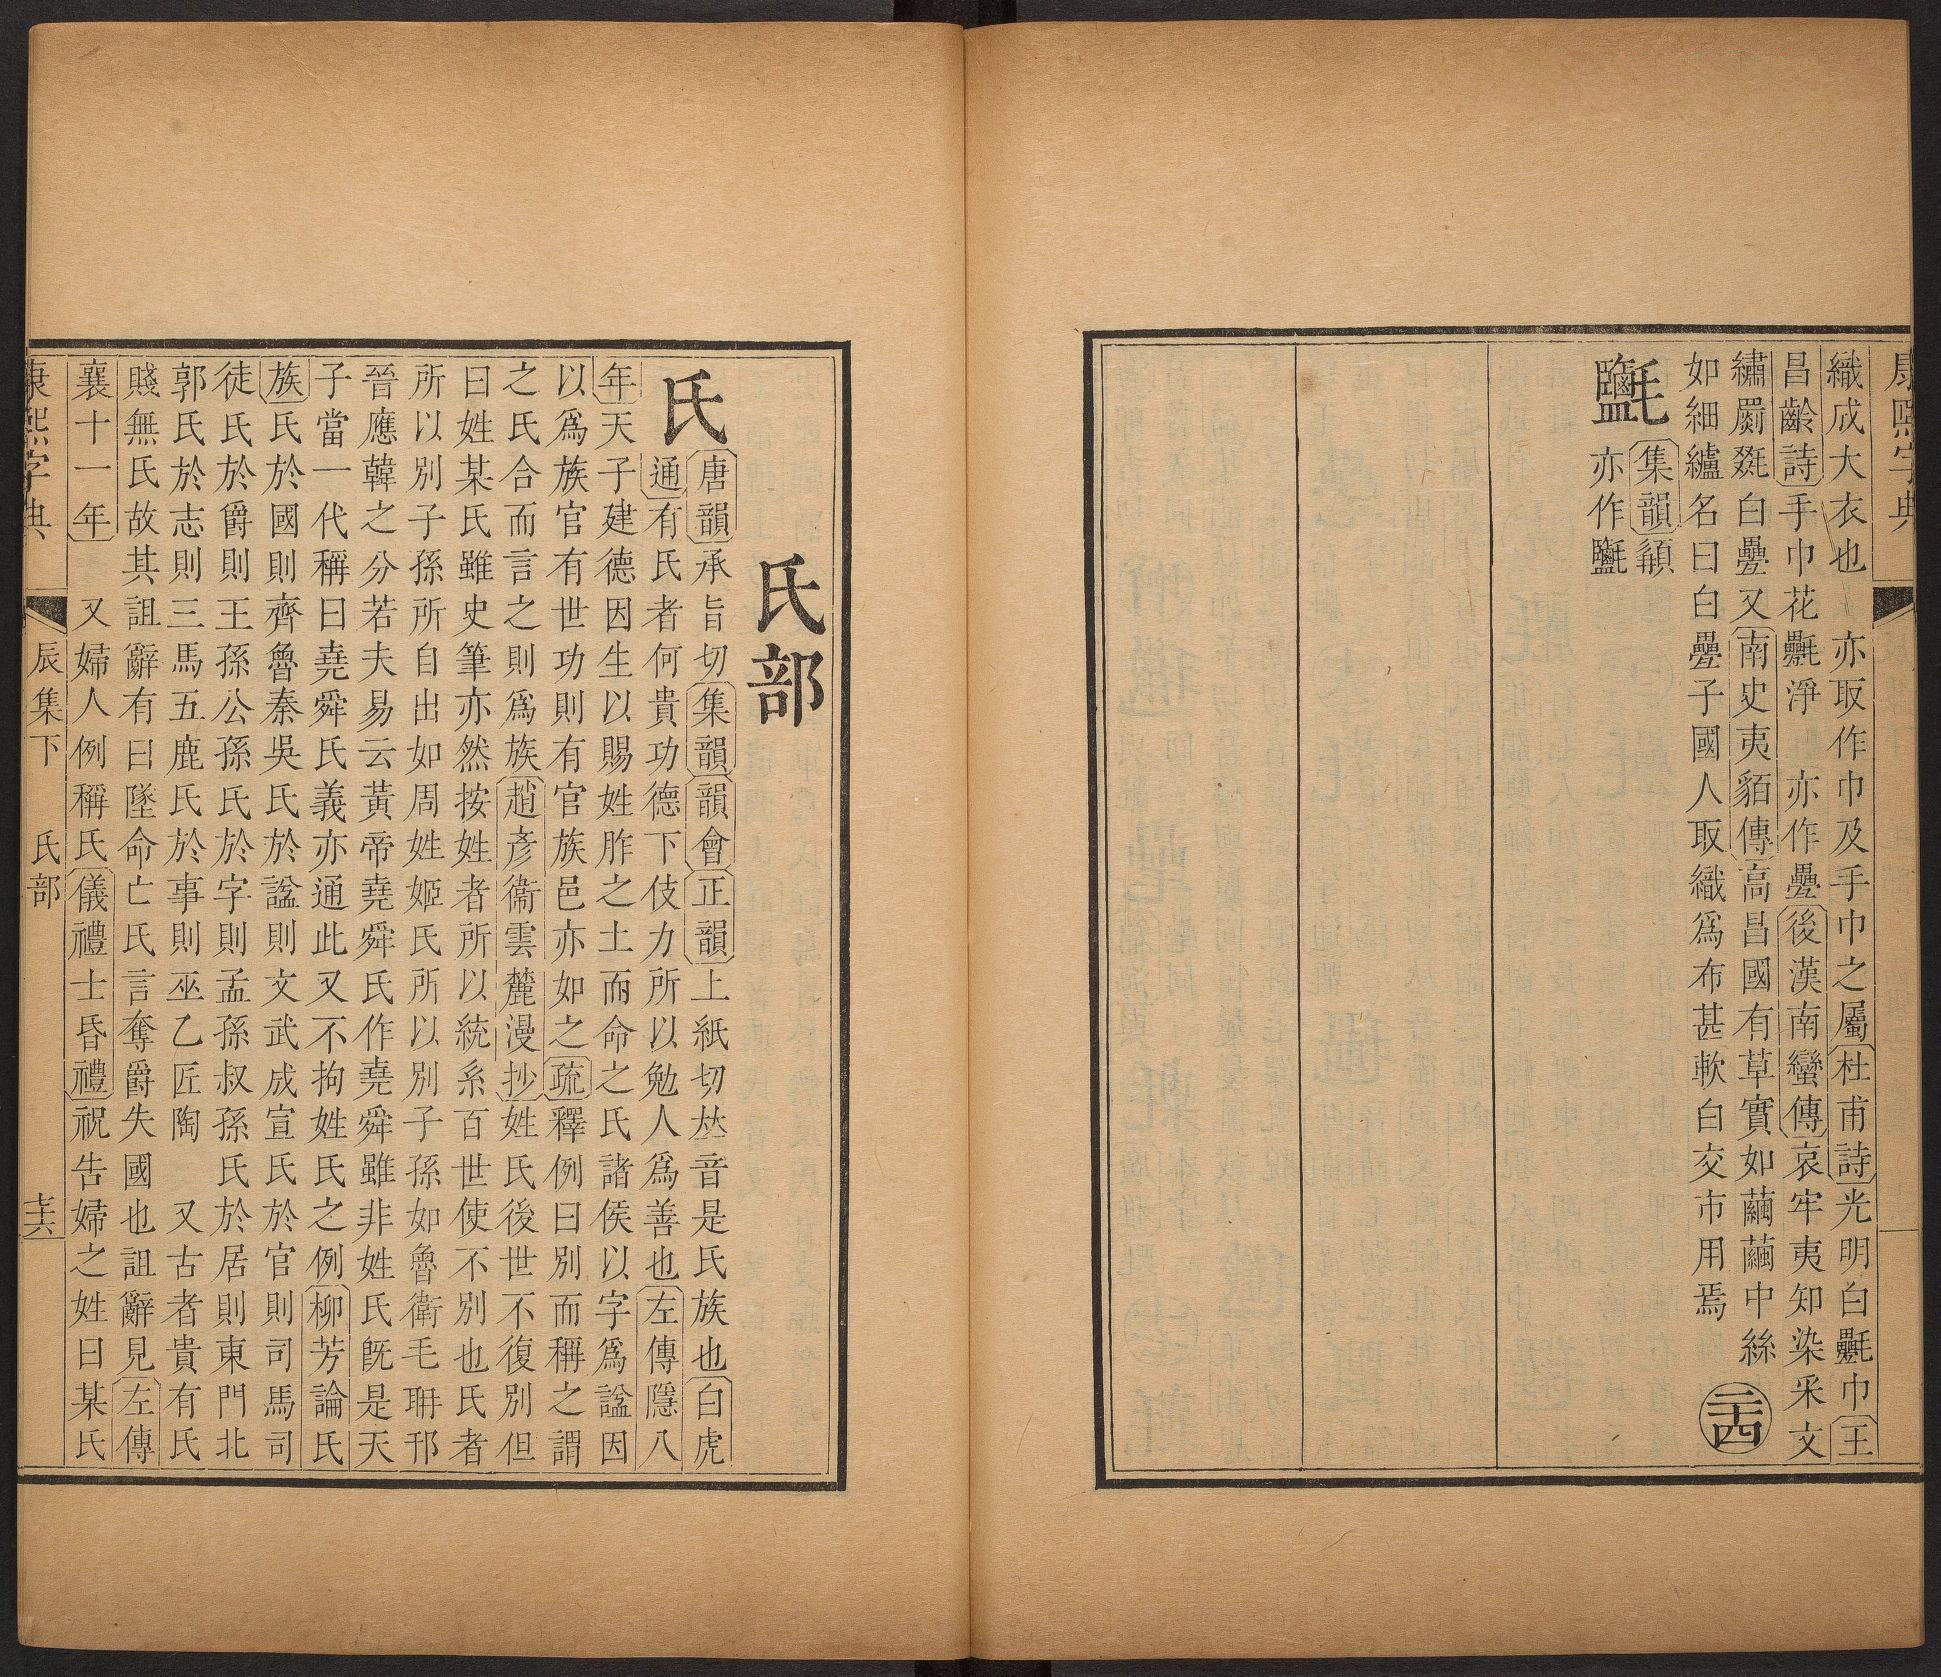 康熙字典
織成大衣也　亦取作巾及手巾之屬杜甫詩光明白㲲巾王
昌齡詩手巾花㲲淨　亦作疊後漢南蠻傳哀牢夷知染采文
繡罽毲白疊又南史夷貊傳高昌國有草實如繭繭中絲
如細纑名曰白疊子國人取織爲布甚軟白交市用焉
二十四
集韻顈
亦作
氏部
氏
唐韻承旨切集韻韻會正韻上紙切𠀤音是氏族也白虎
通有氏者何貴功德下伎力所以勉人爲善也左傳隱八
年天子建德因生以賜姓胙之土而命之氏諸侯以字爲諡因
以爲族官有世功則有官族邑亦如之疏釋例曰別而稱之謂
之氏合而言之則爲族趙彥衞雲麓漫抄姓氏後世不復別但
曰姓某氏雖史筆亦然按姓者所以統系百世使不別也氏者
所以別子孫所自出如周姓姬氏所以別子孫如魯衛毛聃邘
晉應韓之分若夫易云黃帝堯舜氏作堯舜雖非姓氏旣是天
子當一代稱曰堯舜氏義亦通此又不拘姓氏之例柳芳論氏
族氏於國則齊魯秦吳氏於諡則文武成宣氏於官則司馬司
徒氏於爵則王孫公孫氏於字則孟孫叔孫氏於居則東門北
郭氏於志則三馬五鹿氏於事則巫乙匠陶　又古者貴有氏
賤無氏故其詛辭有曰墜命亡氏言奪爵失國也詛辭見左傳
襄十一年　又婦人例稱氏儀禮士昏禮祝告婦之姓曰某氏
康熙字典　辰集下　氏部　七十六